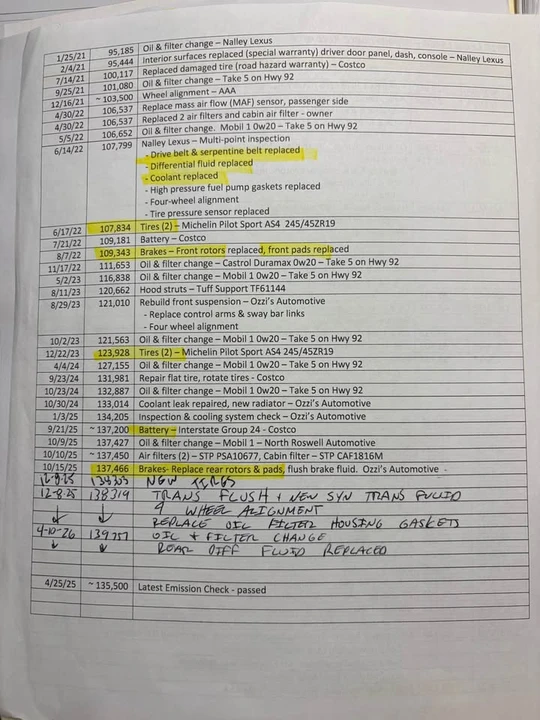 1/25/21 95,185 Oil & filter change – Nalley Lexus
2/4/21 95,444 Interior surfaces replaced (special warranty) driver door panel, dash, console – Nalley Lexus
7/14/21 100,117 Replaced damaged tire (road hazard warranty) – Costco
9/25/21 101,080 Oil & filter change – Take 5 on Hwy 92
12/16/21 ~ 103,500 Wheel alignment – AAA
4/30/22 106,537 Replace mass air flow (MAF) sensor, passenger side
4/30/22 106,537 Replaced 2 air filters and cabin air filter - owner
5/5/22 106,652 Oil & filter change. Mobil 1 0w20 – Take 5 on Hwy 92
6/14/22 107,799 Nalley Lexus – Multi-point inspection
- Drive belt & serpentine belt replaced
- Differential fluid replaced
- Coolant replaced
- High pressure fuel pump gaskets replaced
- Four-wheel alignment
- Tire pressure sensor replaced
6/17/22 107,834 Tires (2) – Michelin Pilot Sport AS4 245/45ZR19
7/21/22 109,181 Battery – Costco
8/7/22 109,343 Brakes – Front rotors replaced, front pads replaced
11/17/22 111,653 Oil & filter change – Castrol Duramax 0w20 – Take 5 on Hwy 92
5/2/23 116,838 Oil & filter change – Mobil 1 0w20 – Take 5 on Hwy 92
8/11/23 120,662 Hood struts – Tuff Support TF61144
8/29/23 121,010 Rebuild front suspension – Ozzi's Automotive
- Replace control arms & sway bar links
- Four wheel alignment
10/2/23 121,563 Oil & filter change – Mobil 1 0w20 – Take 5 on Hwy 92
12/22/23 123,928 Tires (2) – Michelin Pilot Sport AS4 245/45ZR19
4/4/24 127,155 Oil & filter change – Mobil 1 0w20 – Take 5 on Hwy 92
9/23/24 131,981 Repair flat tire, rotate tires - Costco
10/23/24 132,887 Oil & filter change – Mobil 1 0w20 – Take 5 on Hwy 92
10/30/24 133,014 Coolant leak repaired, new radiator – Ozzi's Automotive
1/3/25 134,205 Inspection & cooling system check – Ozzi's Automotive
9/21/25 ~ 137,200 Battery – Interstate Group 24 - Costco
10/9/25 137,427 Oil & filter change – Mobil 1 – North Roswell Automotive
10/10/25 ~ 137,450 Air filters (2) – STP PSA10677, Cabin filter – STP CAF1816M
10/15/25 137,466 Brakes- Replace rear rotors & pads, flush brake fluid. Ozzi's Automotive -
NEW TIRES
12-8-25 138319 TRANS FLUSH + NEW SYN TRANS FLUID
4 WHEEL ALIGNMENT
REPLACE OIL FILTER HOUSING GASKETS
4-10-26 OIL + FILTER CHANGE
REAR DIFF FLUID REPLACED
4/25/25 ~ 135,500 Latest Emission Check - passed